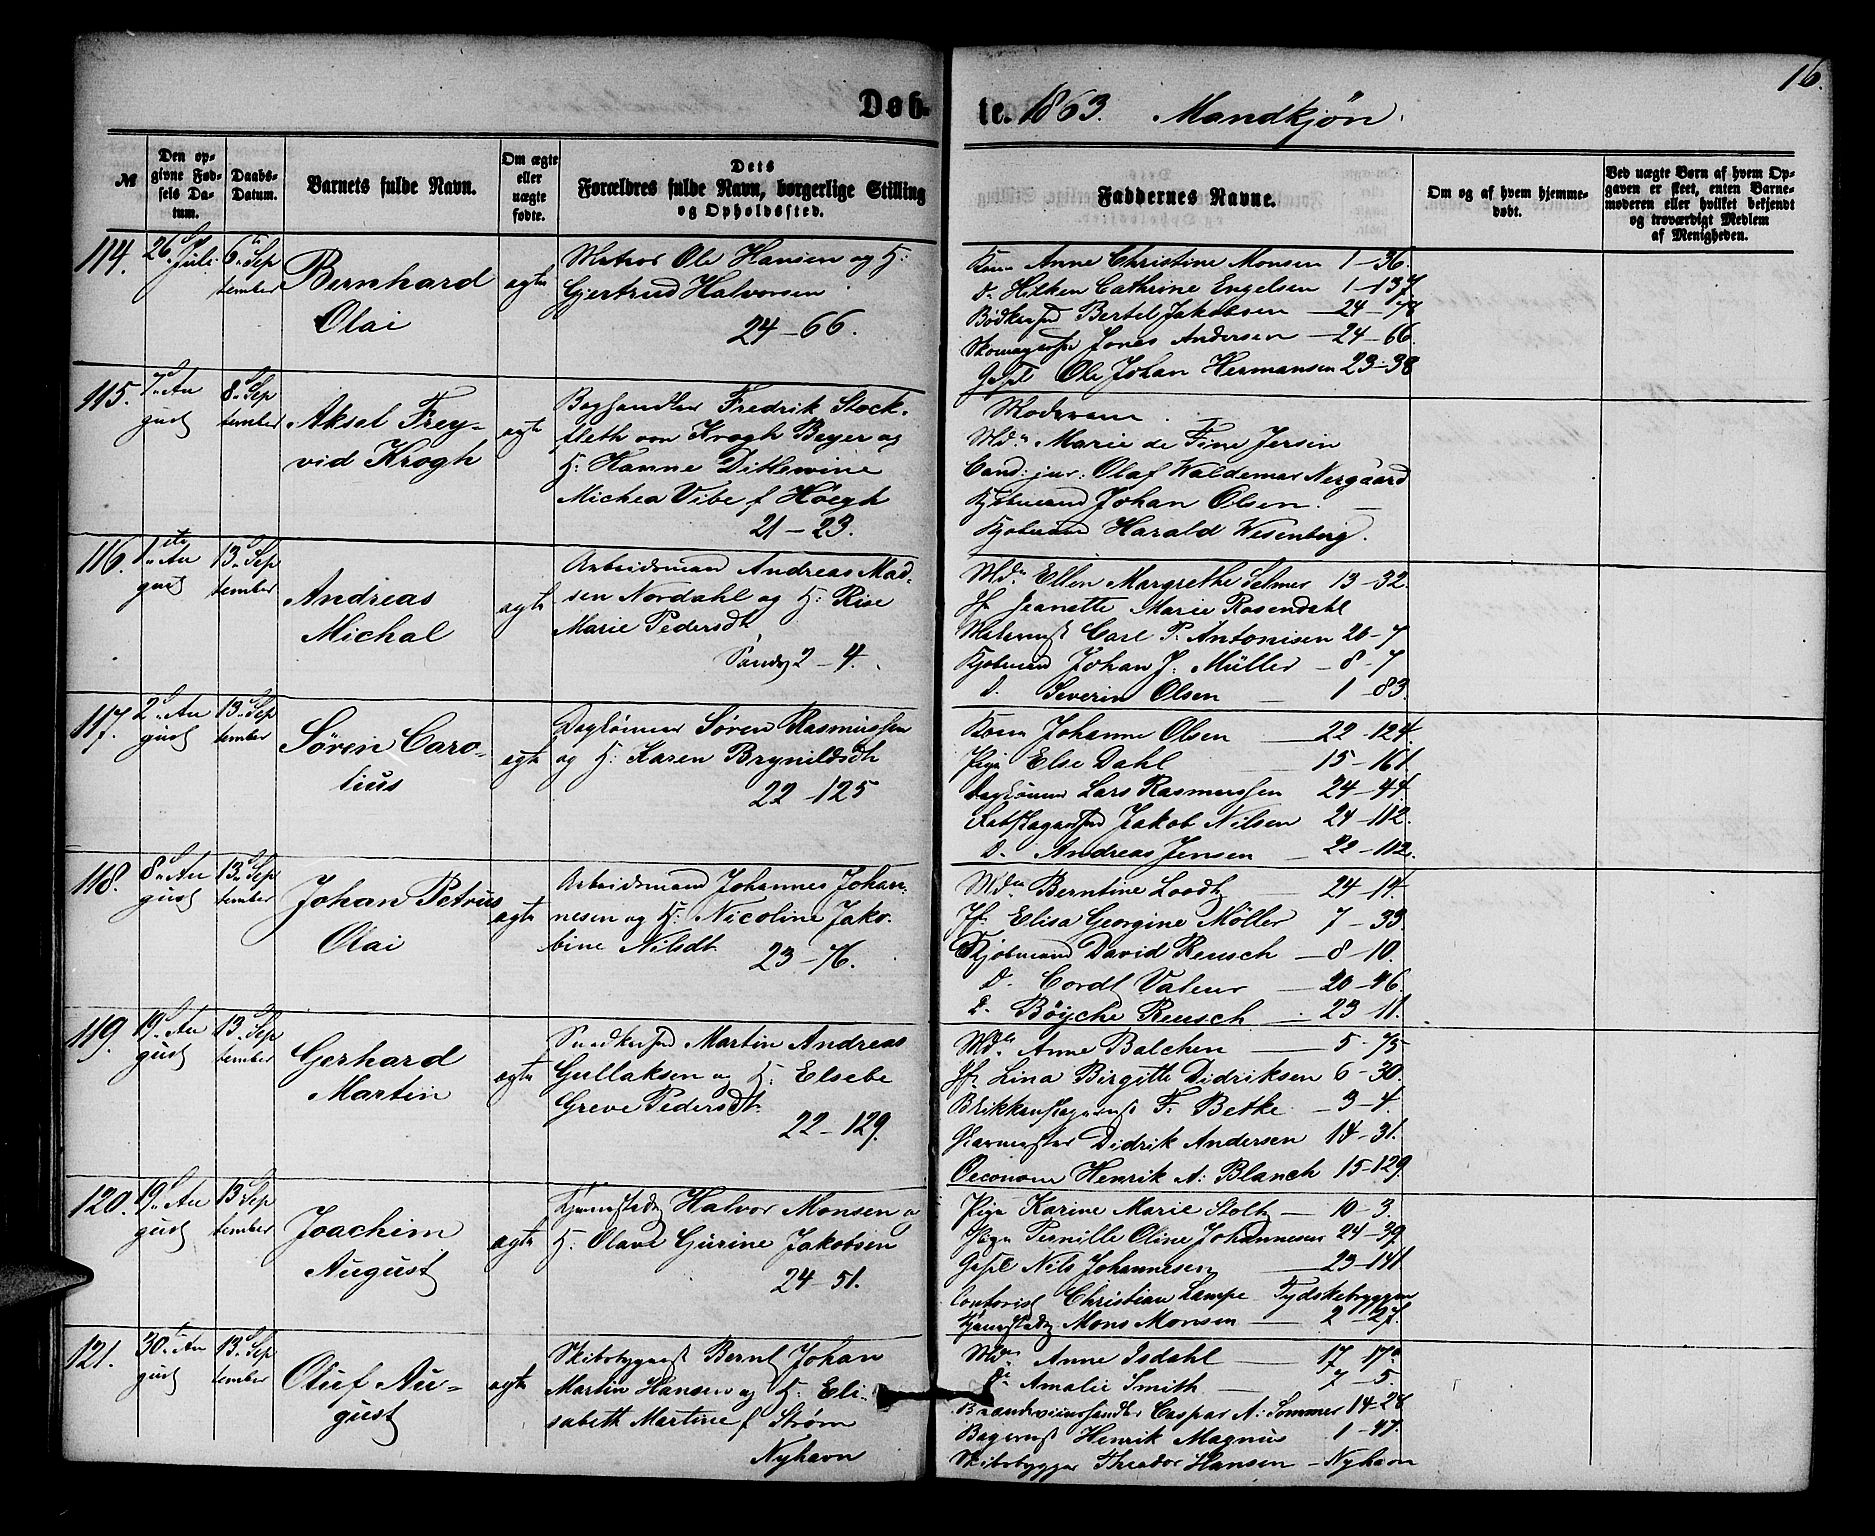 16.
Døb-
te. 1863. Mandkjøn.
№
Den opgivne Fødsels Datum.
Daabs-Datum.
Barnets fulde Navn.
Om ægte eller uægte fødte.
Dets Forældres fulde Navn, borgerlige Stilling og Opholdssted.
Faddernes Navne.
Om og af hvem hjemmedøbt.
Ved uægte Børn af hvem Opgaven er skeet, enten Barnemoderen eller hvilket bekjendt og troværdigt Medlem af Menigheden.
114. 26. Juli 6. September
Bernhard
Olai
ægte
Matros Ole Hansen og H:
Gjertrud Halvorsen
24-66.
Kone Anne Christine Monsen 1-36.
d. Hilken Cathrine Engelsen 1-137
Bødkersvd Bertel Jakobsen 24-78
Skomagersv Jonas Andersen 24-66
Ole Johan Hermansen 23-38
115. 7. August 8. September
Aksel Frey-
vid Krogh
ægte
Boghandler Fredrik Stock-
fleth von Krogh Beyer og
H: Hanne Ditlewine
Michea Vibe f Høegh
21-23.
Moderen
Md. Marie de Fine Jersin
Cand: jur: Olaf Waldemar Nergaard
Kjøbmand Johan Olsen.
Kjøbmand Harald Wesenberg.
116. 1. August 13. September
Andreas
Michal
ægte
Arbeidsmand Andreas Mad-
sen Nordahl og H: Rise
Marie Pedersdt.
2-4.
Md. Ellen Margrethe Selmer 13-32.
Jf Jeanette Marie Rosendahl
Carl P. Antonisen 20-7
Kjøbmand Johan J: Müller 8-7
D. Severin Olsen 1-83.
117. 2. August 13. September
Søren Caro-
lius
ægte
Daglønner Søren Rasmussen
og H: Karen Brynildsdt
22-125
Kone Johanne Olsen 22-124
Pige Else Dahl 15-161.
Daglønner Lars Rasmussen 24-44.
Jakob Nilsen 24-112.
D. Andreas Jensen 22-112.
118. 8. August 13. September
Johan Petrus
Olai
ægte
Arbeidsmand Johannes Johan-
nesen og H: Nicoline Jako-
bine Nilsdt.
23-76.
Md. Berntine Loodtz 24-14.
Jf. Elisa Georgine Möller 7-33.
Kjøbmand David Reusch 8-10.
D. Cordt Valeur 20-46.
D. Böyche Reusch 23-11.
119. 19. August 13. September
Gerhard
Martin
ægte
Snedkersvd Martin Andreas
Gullaksen og H: Elsebe
Greve Pedersdt.
22-129.
Md. Anne Balchen 5-75
Jf. Lina Birgitte Didriksen 6-30.
F. Betke 3-4.
Didrik Andersen 14-31.
Oeconom Henrik A: Blanch 15-129
120. 19. August 13. September
Joachim
August
ægte
Halvor Monsen og
H. Olava Gurine Jakobsen
24-51.
Pige Karine Marie Stoltz 10-3.
Pige Pernille Oline Johannesen 24-39
Nils Johannesen 23-141
Contorist Christian Lampe Tydskebryggen
Mons Monsen 2-27.
121. 30. August 13. September
Oluf Au-
gust
ægte
Skibsbygger Bernt Johan
Martin Hansen og H. Eli-
sabeth Martine f Strøm
Nyhavn
Md. Anne Isdahl 17-17
D. Amalie Smith 7-5.
Brændeviinshandler Caspar A: Sommer 14-28
Bagermst Henrik Magnus 1-47.
Skibsbygger Theodor Hansen - Nyhavn